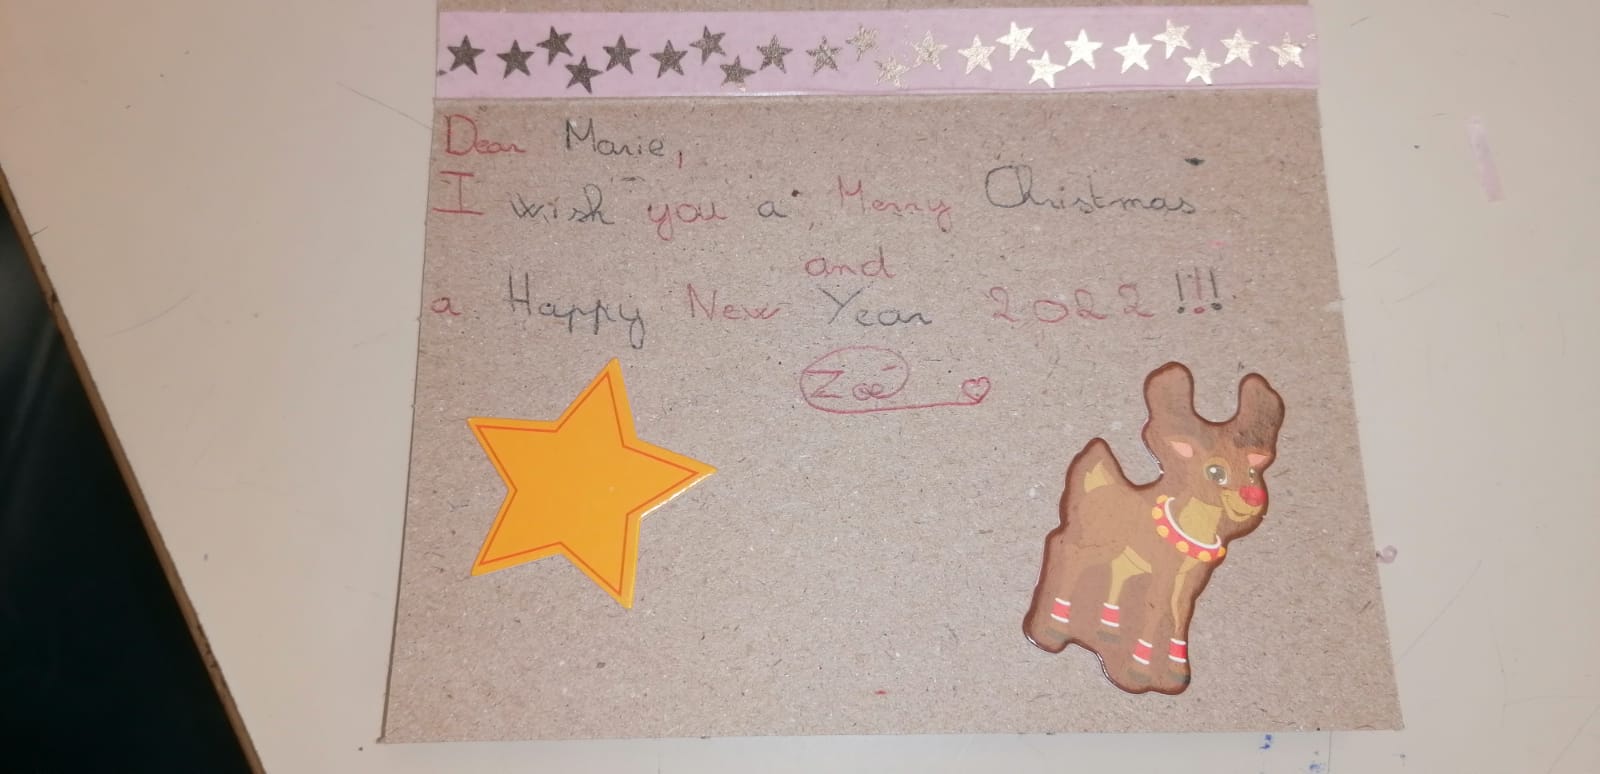 Dear Marie,
I wish you a Merry Christmas
and
a Happy New Year 2022 !!!
Zoé